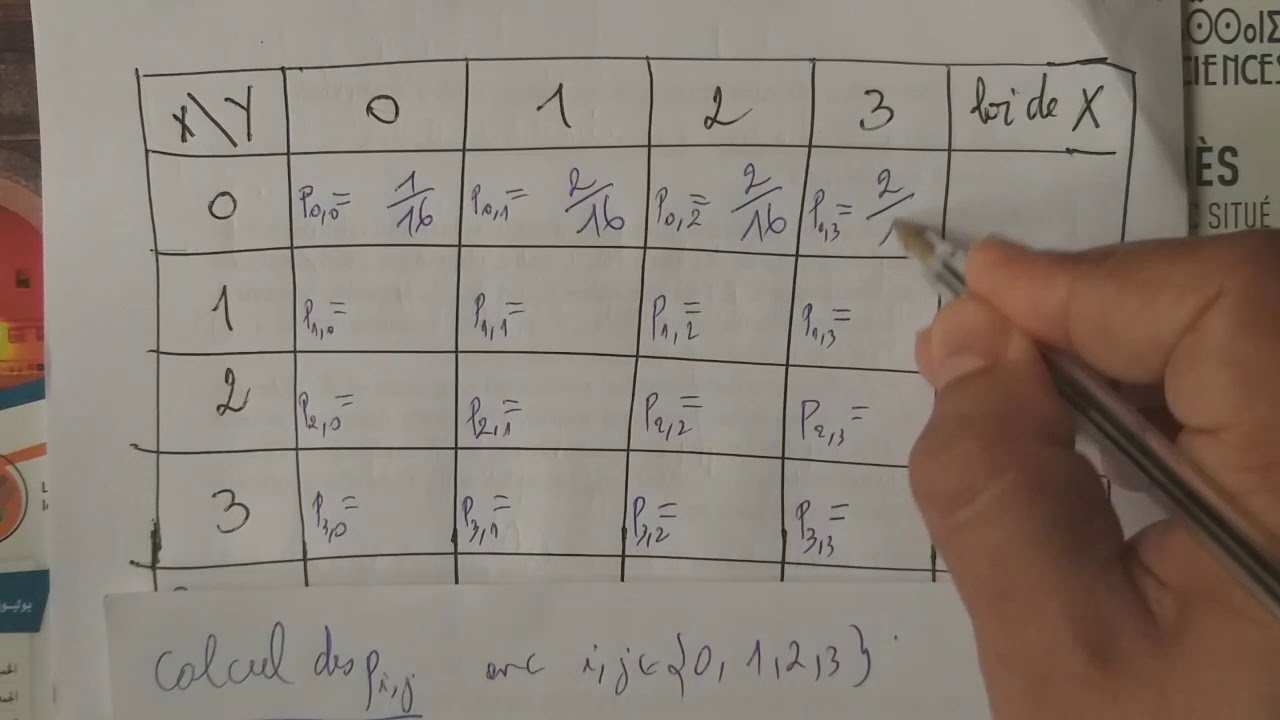 X\Y 0 1 2 3 loi de X
0 P0,0= 1/16 P0,1= 2/16 P0,2= 2/16 P0,3= 2/1
1 P1,0= P1,1= P1,2= P1,3=
2 P2,0= P2,1= P2,2= P2,3=
3 P3,0= P3,1= P3,2= P3,3=
calcul des Pi,j avec i,j∈{0, 1,2,3}
CIENCES
ÈS
SITUÉ